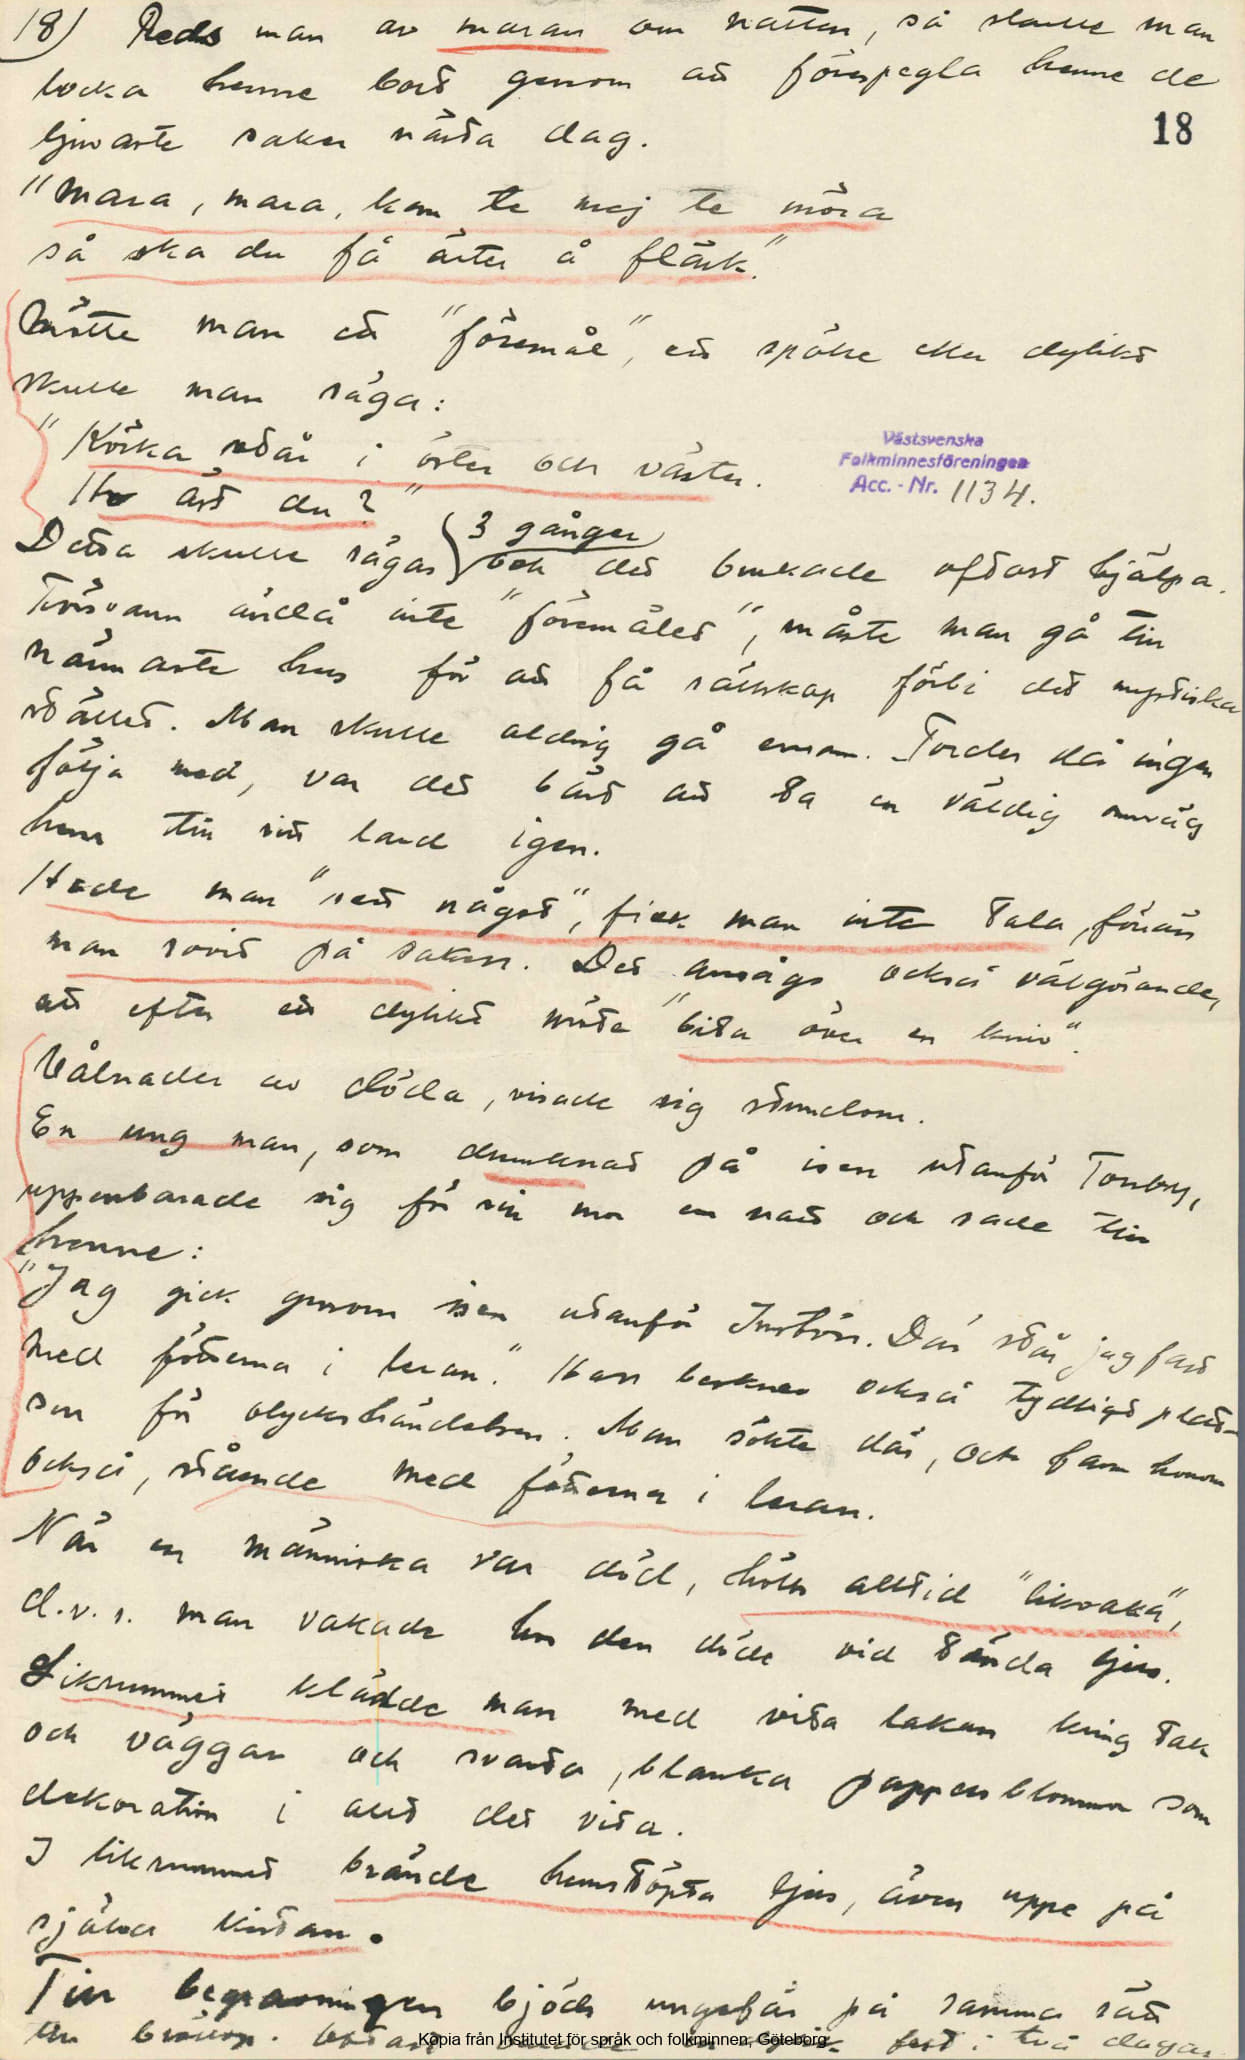 18) Reds man av maran om natten, så skulle man
locka henne bort genom att förespegla henne de
ljuvaste saker nästa dag.
18
"Mara, mara, kom te mej te möra
så ska du få ärter å fläsk."
Mötte man ett "föremål", ett spöke eller dylikt
skulle man säga:
"Körka står i öster och väster.
Ho äst du?"
Västsvenska
Folkminnesföreningen
Acc. - Nr. 1134.
3 gånger
Detta skulle sägas och det brukade oftast hjälpa.
Försvann ändå inte "föremålet", måste man gå till
närmaste hus för att få sällskap förbi det mystiska
stället. Man skulle aldrig gå ensam. Tordes då ingen
följa med, var det bäst att ta en väldig omväg
hem till sitt land igen.
Hade man "sett något", fick man inte tala, förrän
man sovit på saken. Det ansågs också välgörande,
att efter ett dylikt möte "bita över en kniv".
Vålnader av döda, visade sig stundom.
En ung man, som drunknat på isen utanför Torsby,
uppenbarade sig för sin mor en natt och sade till
henne:
"Jag gick genom isen utanför Där står jag fast
med fötterna i leran." Han beskrev också tydligt plat-
sen för olyckshändelsen. Man sökte där, och fann honom
också, stående med fötterna i leran.
När en människa var död, hölls alltid "likvaka",
d.v.s. man vakade hos den döde vid tända ljus.
Likrummet klädde man med vita lakan kring tak
och väggar och svarta, blanka pappersblommor som
dekoration i allt det vita.
I likrummet brände hemstöpta ljus, även uppe på
själva kistan.
Till begravningen bjöds ungefär på samma sätt
till bröllop. fest i två dagar.
Kopia från Institutet för språk och folkminnen, Göteborg